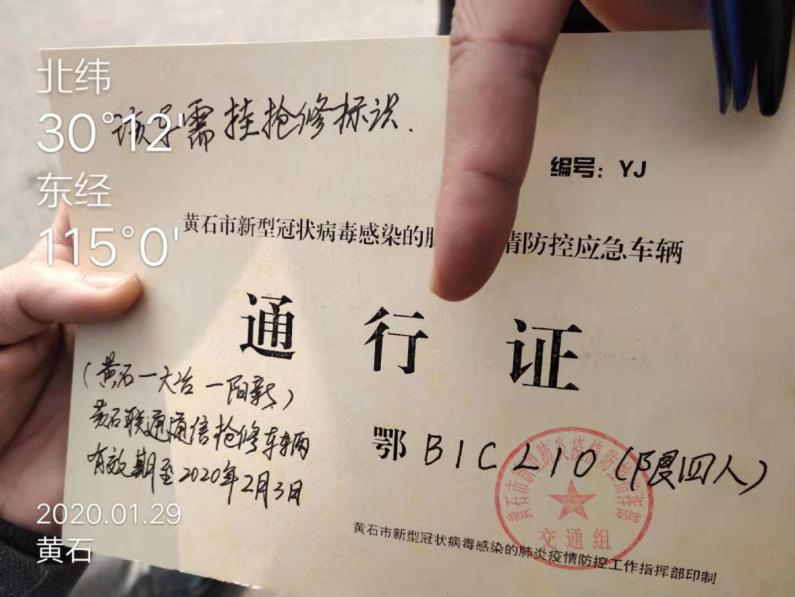 北纬
30°12'
东经
115°0'
该车需挂抢修标识.
编号：YJ
黄石市新型冠状病毒感染的肺 情防控应急车辆
通行证
(黄石一大冶一阳新)
黄石联通通信抢修车辆
有效期至2020年2月3日
鄂B1CL10(限四人)
交通组
黄石市新型冠状病毒感染的肺炎疫情防控工作指挥部印制
2020.01.29
黄石